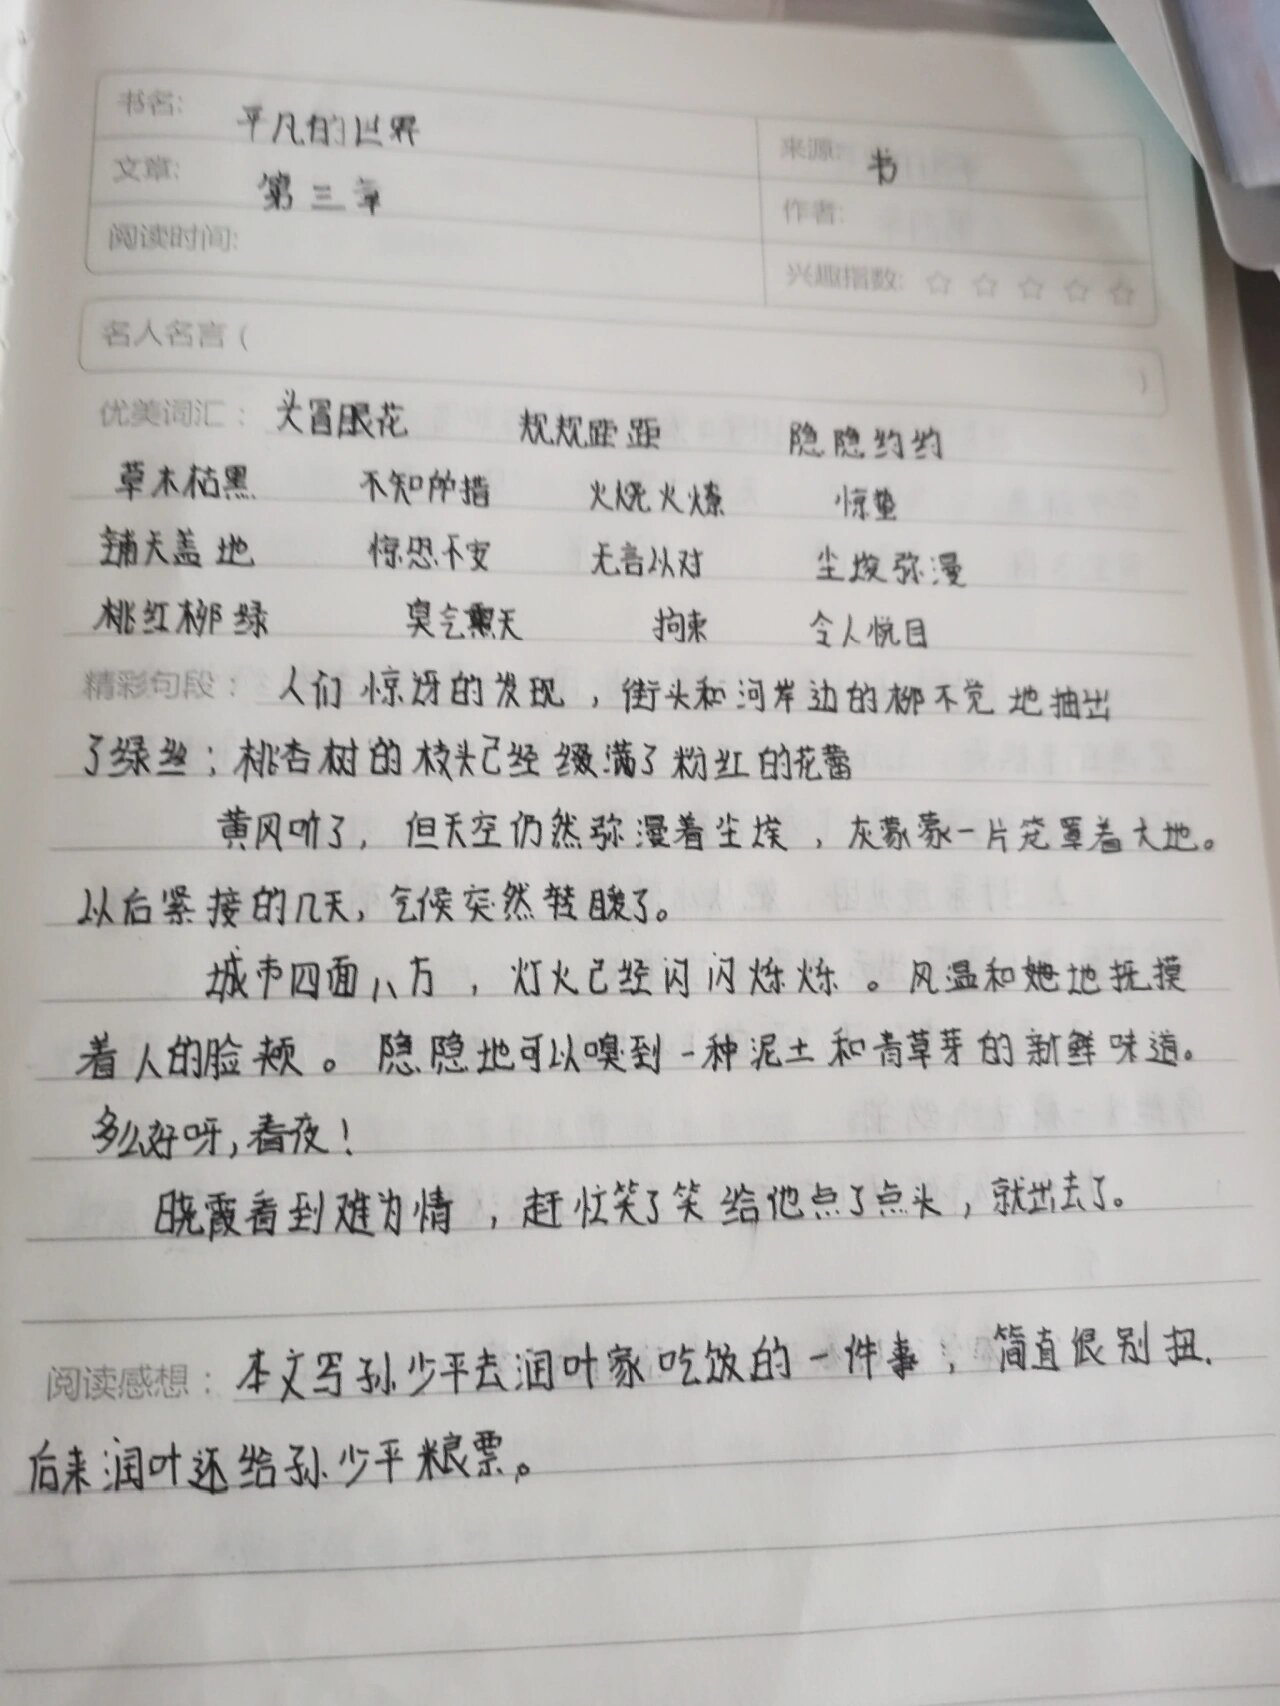 书名: 平凡的世界
来源: 书
文章: 第三章
作者:
阅读时间:
兴趣指数: ☆ ☆ ☆ ☆ ☆
名人名言 ( )
优美词汇： 头冒眼花 规规距距 隐隐约约
草木枯黑 不知所措 火烧火燎 惊蛰
铺天盖地 惊恐不安 无言以对 尘埃弥漫
桃红柳绿 臭气熏天 拘束 令人悦目
精彩句段： 人们惊讶的发现，街头和河岸边的柳不觉地抽出
了绿丝；桃杏树的枝头已经缀满了粉红的花蕾
黄风听了，但天空仍然弥漫着尘埃，灰蒙蒙一片笼罩着大地。
以后紧接的几天，气候突然转暖了。
城市四面八方，灯火已经闪闪烁烁。风温和她地抚摸
着人的脸颊。隐隐地可以嗅到一种泥土和青草芽的新鲜味道。
多么好呀，春夜！
晓霞看到难为情，赶忙笑了笑给他点了点头，就出去了。
阅读感想： 本文写孙少平去润叶家吃饭的一件事；简直很别扭.
后来润叶还给孙少平粮票。